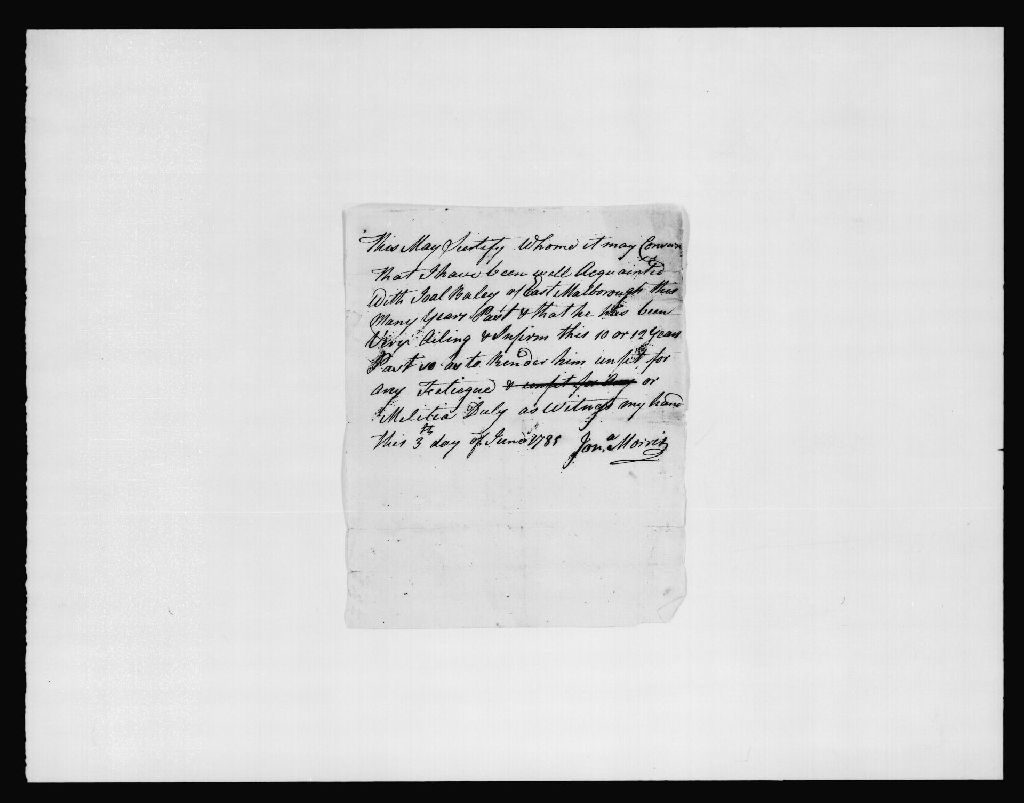 This May Certify Whome it may Concern
that I have been well Acquainted
With Joal Baley of East Malborough this
Many Years Past & that he has been
Very Ailing & Infirm this 10 or 12 Years
Past so as to Render him unfit for
any Fetiague & unfit for any or
Militia Duty as Witness my hand
this 3th day of June 1785 Jona Morris